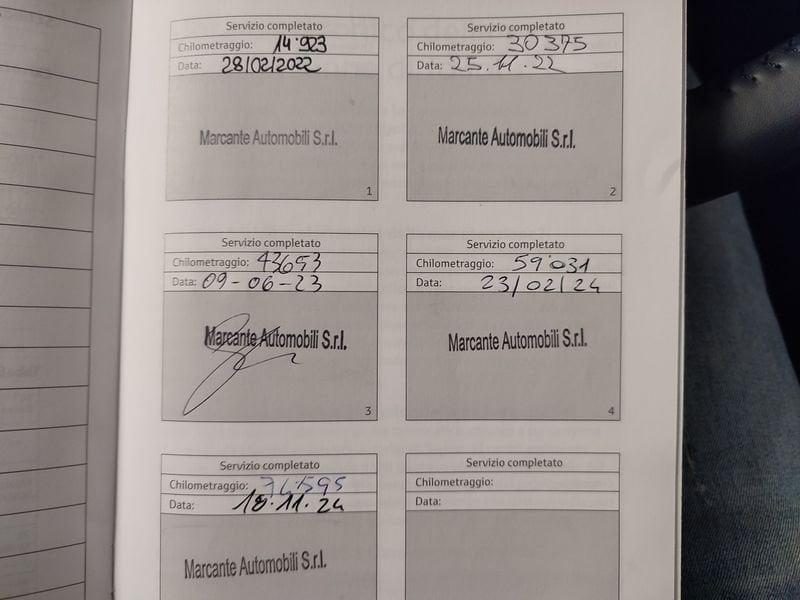 Servizio completato
Chilometraggio: 14.923
Data: 28/02/2022
Marcante Automobili S.r.l.
1
Servizio completato
Chilometraggio: 30375
Data: 25.11.22
Marcante Automobili S.r.l.
2
Servizio completato
Chilometraggio: 43653
Data: 09-06-23
Marcante Automobili S.r.l.
3
Servizio completato
Chilometraggio: 59.031
Data: 23/02/24
Marcante Automobili S.r.l.
4
Servizio completato
Chilometraggio: 74.595
Data: 18.11.24
Marcante Automobili S.r.l.
Servizio completato
Chilometraggio:
Data: